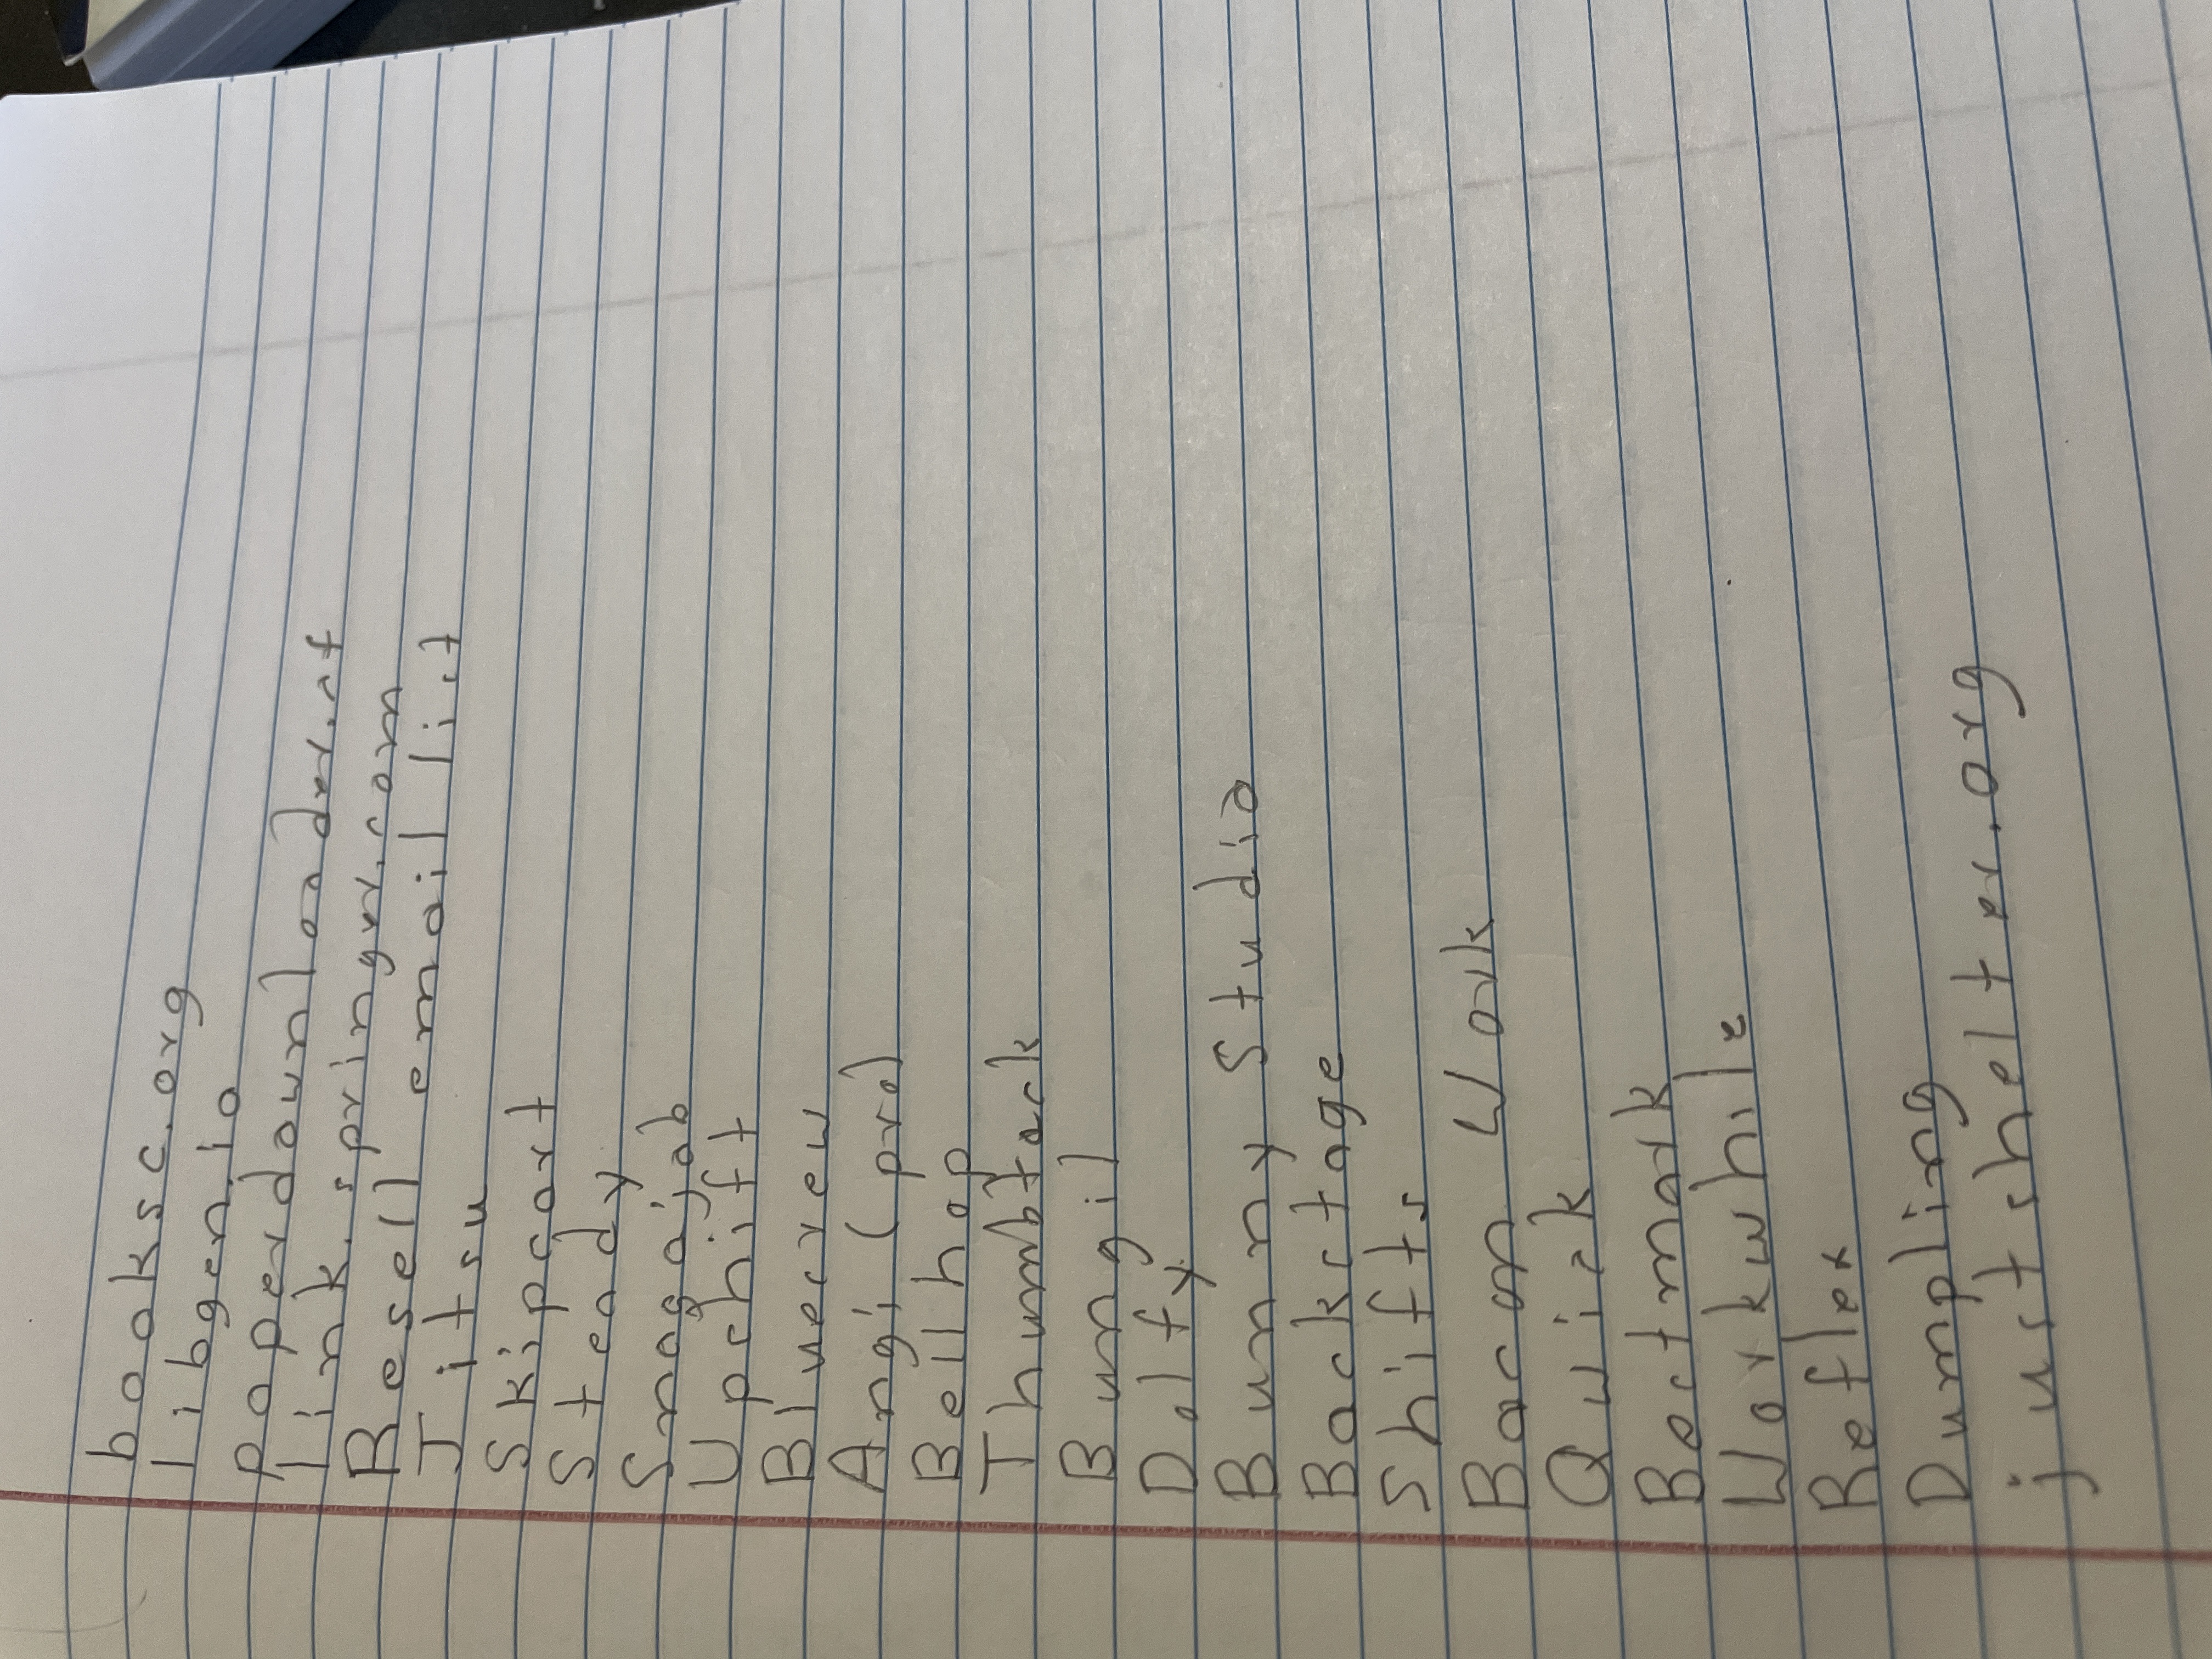 booksc.org
libgen.io
paperdownloader.cf
link.springer.com
Resell email list
Jitsu
Skipcart
Steady
Snagajob
Upshift
Bluecrew
Angi (pro)
Bellhop
Thumbtack
Bungii
Dolly
Bunny Studio
Backstage
Shifts
Bacon Work
Qwick
Bestmark
Workwhile
Reflex
Dumpling
justshelter.org